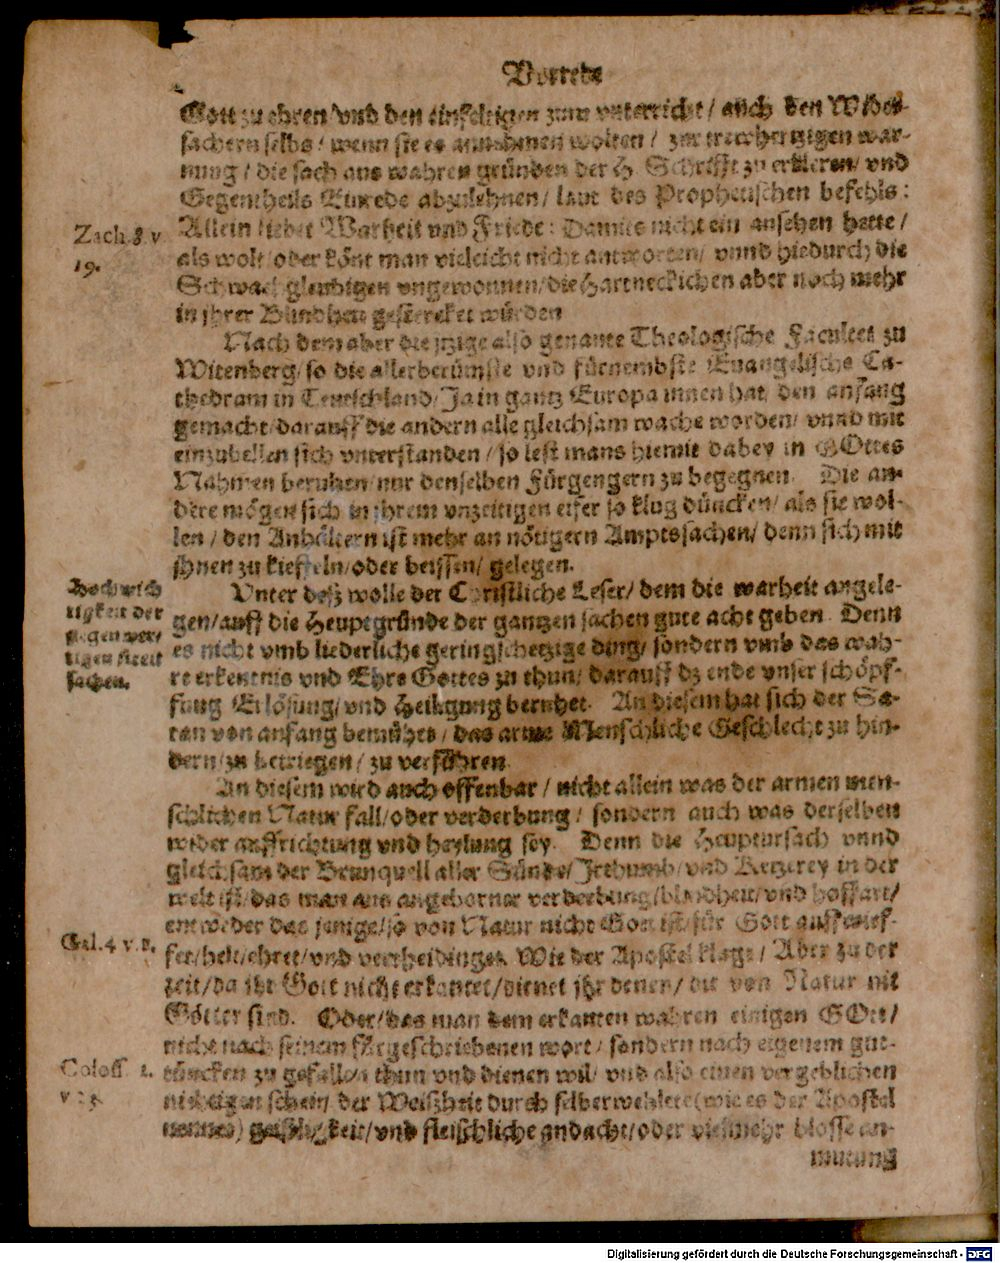 Vorrede
Gott zu ehren/vnd den einfeltigen zum vnterricht/ auch den Wider-
sachern selbs/ wenn sie es annehmen wolten/ zur trewhertzigen war-
nung/ die sach aus wahren gründen der H. Schrifft zu erkleren/ vnd
Gegentheils Einrede abzulehnen/ laut des Prophetischen befehls:
Zach. 8. v
19.
Allein liebet Warheit vnd Friede: Damits nicht ein ansehen hette/
als wolt/oder könt man vieleicht nicht antworten/ vnnd hiedurch die
Schwachgleubigen vngewonnen/die Hartneckichen aber noch mehr
in jhrer Blindheit gestercket würden
Nach dem aber die jtzige also genante Theologische Facultet zu
Witenberg/ so die allerberümste vnd fürnembste Euangelische Ca-
thedram in Teutschland/ Ja in gantz Europa innen hat/ den anfang
gemacht/darauff die andern alle gleichsam wache worden/ vnnd mit
einzubellen sich vnterstanden/ so lest mans hiemit dabey in GOttes
Nahmen beruhen/nur denselben Fürgengern zu begegnen. Die an-
dere mögen sich in jhrem vnzeitigen eifer so klug düncken/ als sie wol-
len/ den Anhältern ist mehr an nötigern Amptssachen/ denn sich mit
jhnen zu kieffeln/oder beissen/ gelegen.
Hochwich
tigkeit der
gegenwer-
tigen streit
sachen.
Vnter deß wolle der Christliche Leser/ dem die warheit angele-
gen/auff die Heuptgründe der gantzen sachen gute acht geben. Denn
es nicht vmb liederliche geringschetzige ding/ sondern vmb das wah-
re erkentnis vnd Ehre Gottes zu thun/ darauff dz ende vnser schöpf-
fung Erlösung/ vnd Heiligung beruhet. An diesem hat sich der Sa-
tan von anfang bemühet/ das arme Menschliche Geschlecht zu hin-
dern/zu betriegen/ zu verführen.
An diesem wird auch offenbar/ nicht allein was der armen men-
schlichen Natur fall/oder verderbung/ sondern auch was derselben
wider auffrichtung vnd heylung sey. Denn die Heuptursach vnnd
gleichsam der Brunquell aller Sünde/ Jrthumb/ vnd Ketzerey in der
welt ist/das man aus angeborner verderbung/blindheit/ vnd hoffart/
entweder das jenige/so von Natur nicht Gott ist/für Gott auffwirf-
Gal. 4 v. 8.
fet/helt/ehret/vnd vertheidinget. Wie der Apostel klagt/ Aber zu der
zeit/da jhr Gott nicht erkantet/dienet jhr denen/ die von Natur nit
Götter sind. Oder/das man dem erkanten wahren einigen GOtt/
nicht nach seinem fürgeschriebenen wort/ sondern nach eigenem gut-
Coloss. 2.
v 23.
düncken zu gefallen thun vnd dienen wil/ vnd also einen vergeblichen
nichtigen schein der Weißheit durch selberwehlete (wie es der Apostel
nennet) geistligkeit/vnd fleischliche andacht/oder vielmehr blosse an-
mutung
Digitalisierung gefördert durch die Deutsche Forschungsgemeinschaft - DFG